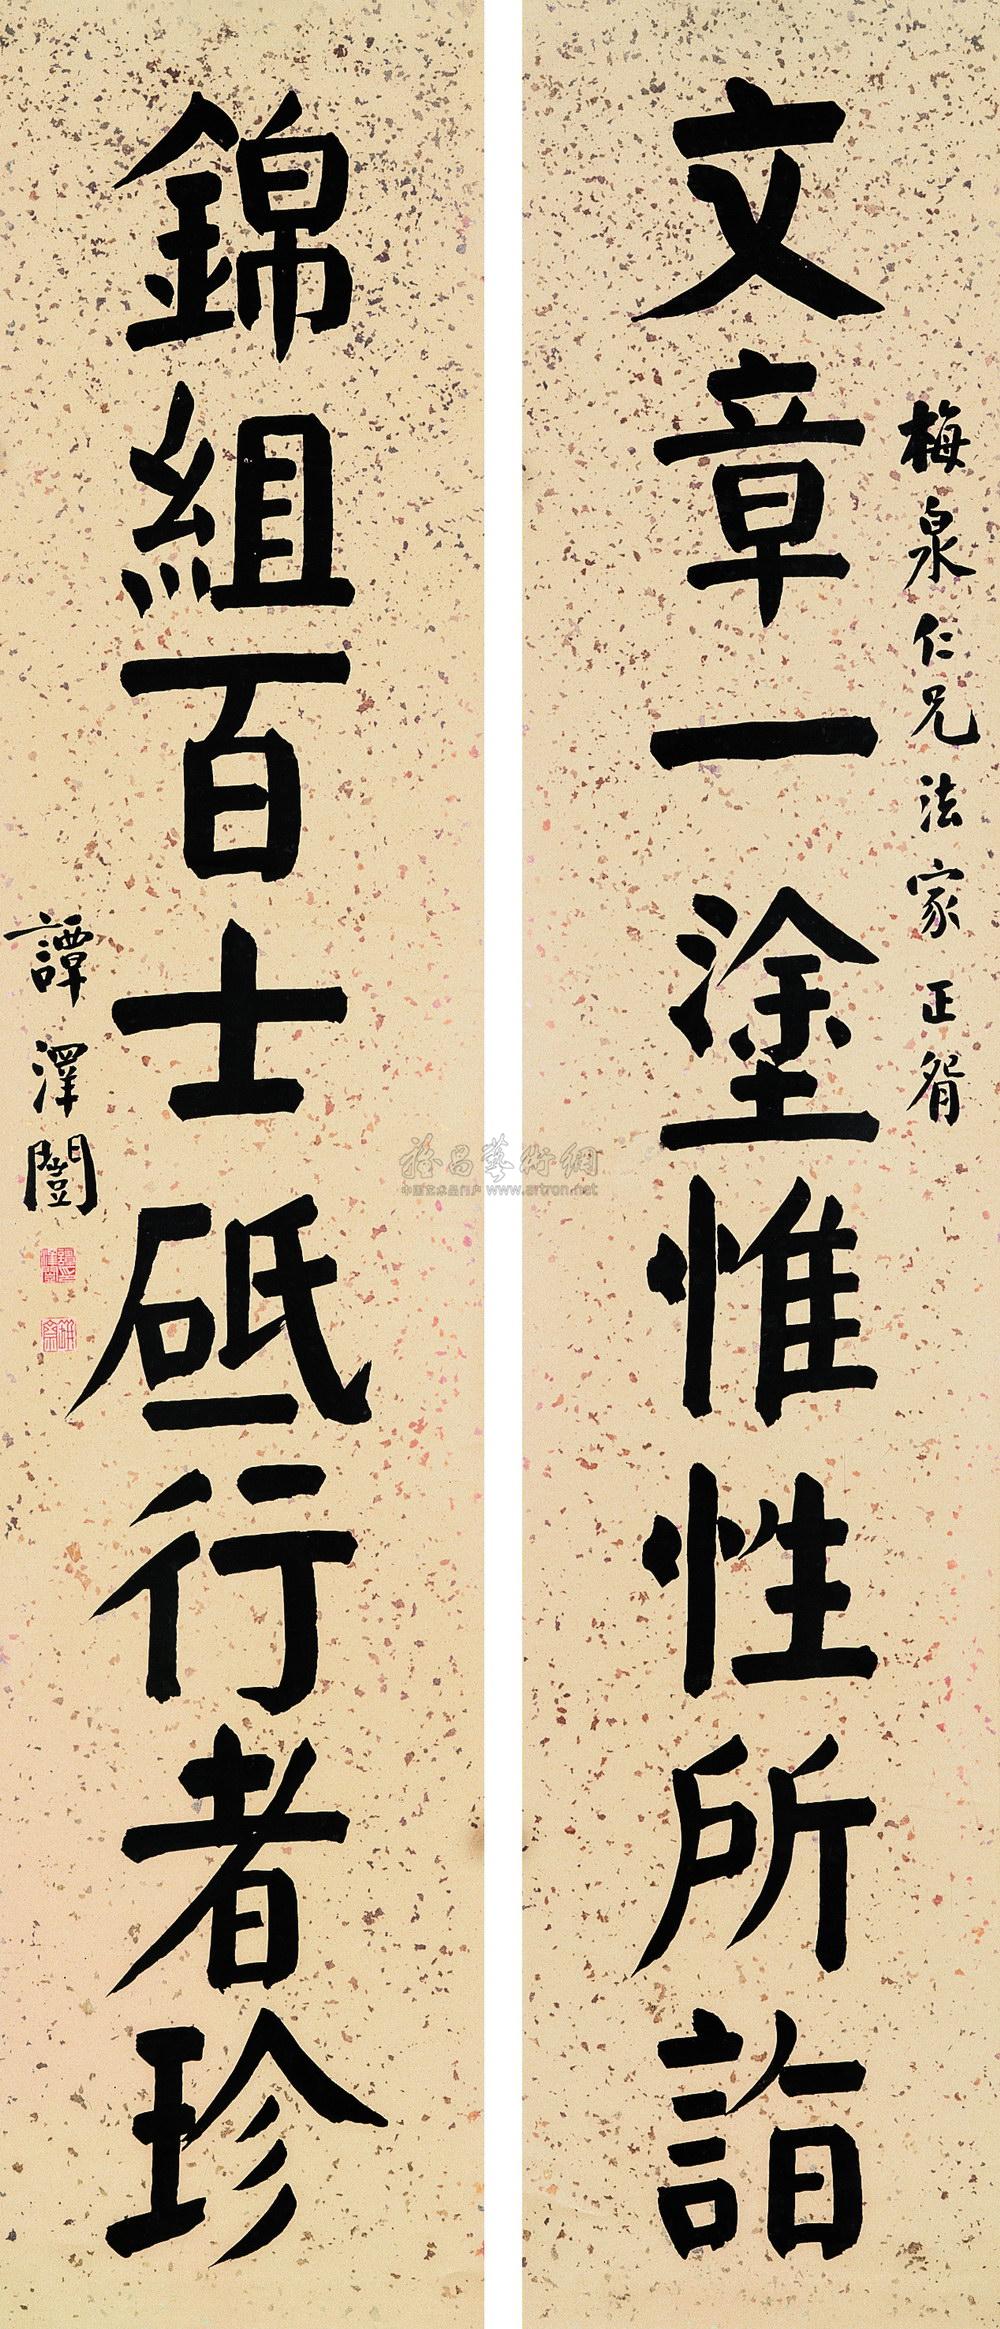 梅泉仁兄法家正眥
文章一塗惟性所詣
錦組百士砥行者珍
譚澤闓
中国艺术品门户 www.artron.net